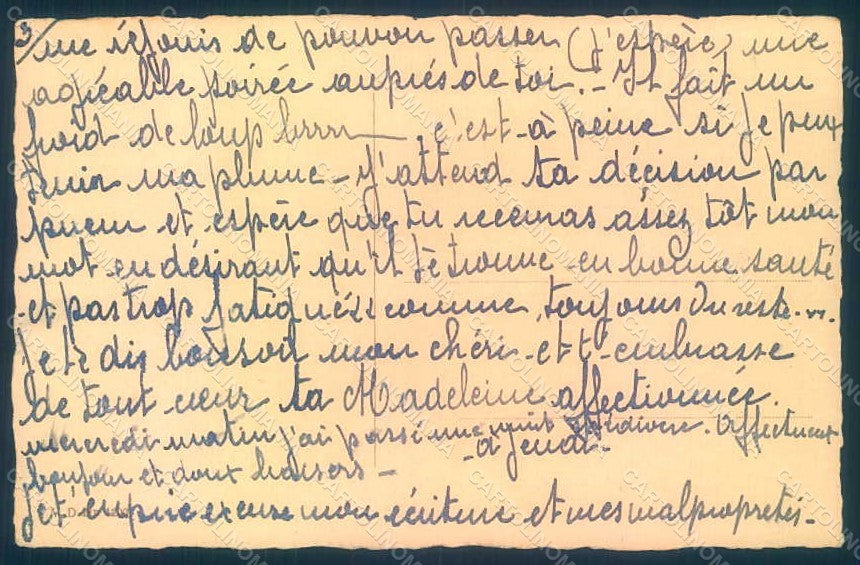 3/ me réjouis de pouvoir passer (j'espère) une
agréable soirée auprès de toi. - Il fait un
froid de loup brrrr , c'est - à peine si je peux
tenir ma plume - J'attend ta décision par
pneu et espère que tu recevras assez tôt mon
mot en désirant qu'il te trouve en bonne santé
- et pas trop fatigué comme toujours du reste...
Je te dis bonsoir mon chéri - et t'embrasse
de tout cœur ta Madeleine affectionnée.
mercredi matin j'ai passé une nuit . Affectueux
- à jeudi -
bonjour et doux baisers -
Je t'en prie excuse mon écriture et mes malpropretés -